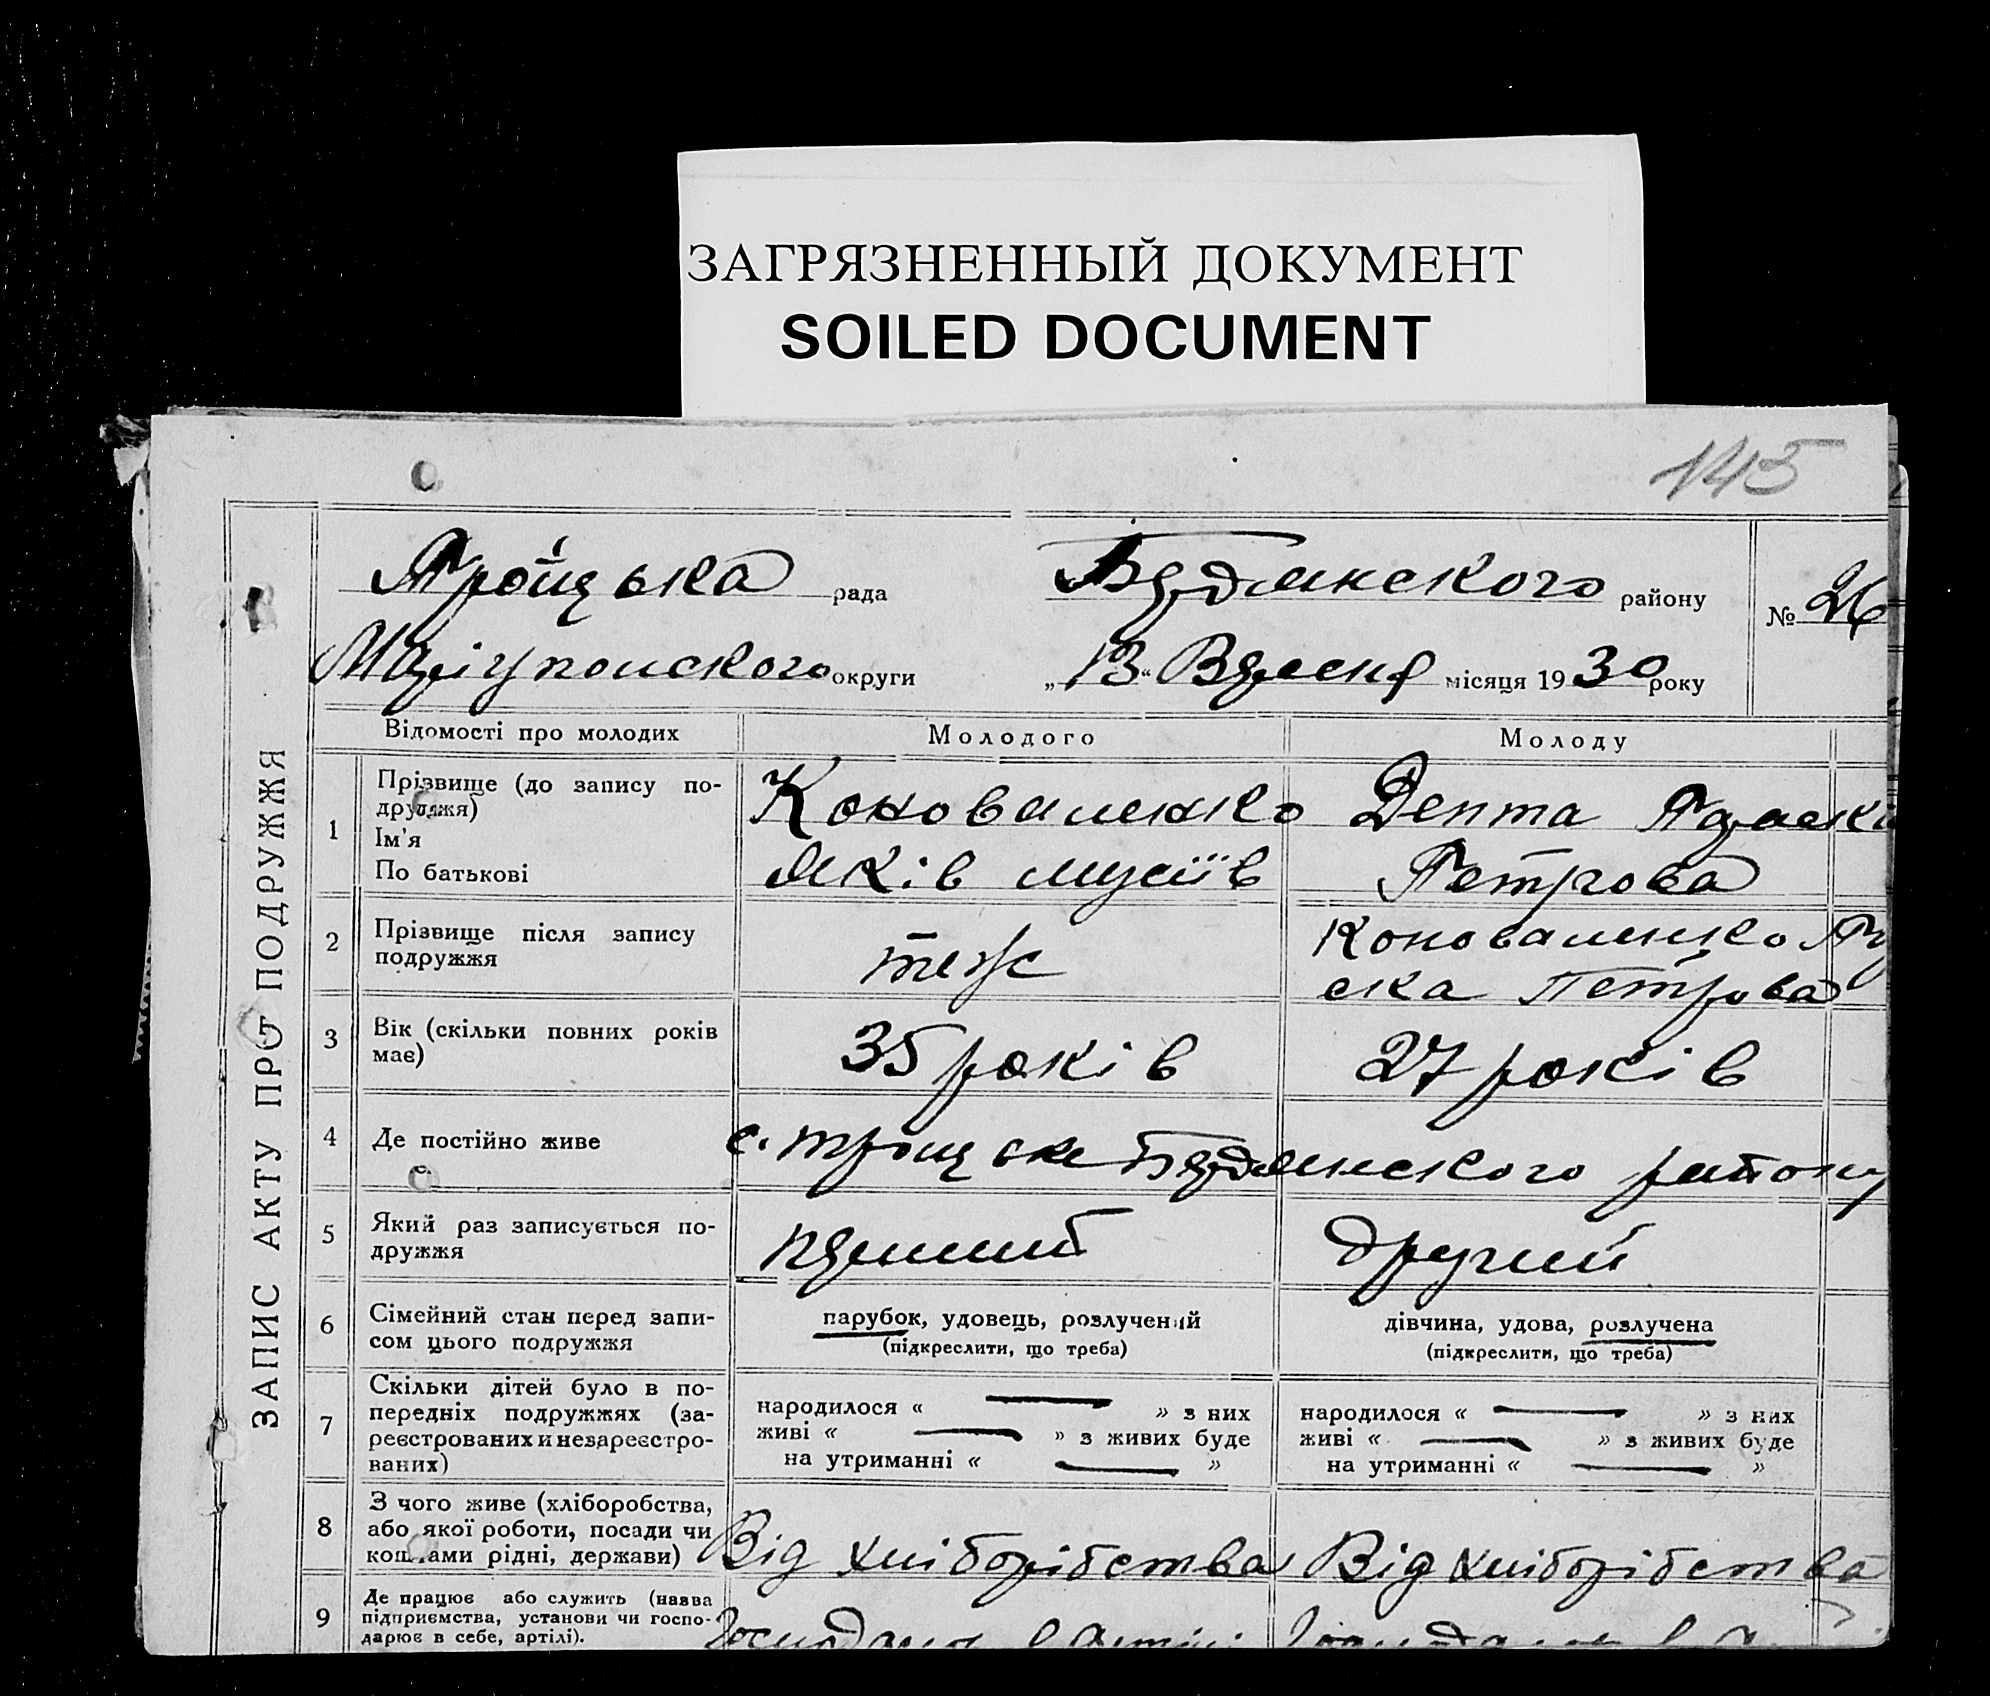 ЗАГРЯЗНЕННЫЙ ДОКУМЕНТ
SOILED DOCUMENT
145
ЗАПИС АКТУ ПРО ПОДРУЖЖЯ
Троїцька рада Будянского району № 26
Маріупольского округи „13“ Вересня місяця 1930 року
Відомості про молодих Молодого Молоду
1 Прізвище (до запису по-
дружжя)
Ім'я
По батькові
Коноваленко
Яків Мусіїв
Депта
Петрова
2 Прізвище після запису
подружжя
теж
Коноваленко
ска Петрова
3 Вік (скільки повних років
має)
35 років
27 років
4 Де постійно живе
с. Троїцьке Будянского району
5 Який раз записується по-
дружжя
перший
другий
6 Сімейний стан перед запи-
сом цього подружжя
парубок, удовець, розлучений
(підкреслити, що треба)
дівчина, удова, розлучена
(підкреслити, що треба)
7 Скільки дітей було в по-
передніх подружжях (за-
реєстрованих и незареєстро-
ваних)
народилося « — » з них
живі « — » з живих буде
на утриманні « — »
народилося « — » з них
живі « — » з живих буде
на утриманні « — »
8 З чого живе (хліборобства,
або якої роботи, посади чи
коштами рідні, держави)
Від хліборібства
Від хліборібства
9 Де працює або служить (назва
підприємства, установи чи госпо-
дарює в себе, артілі).